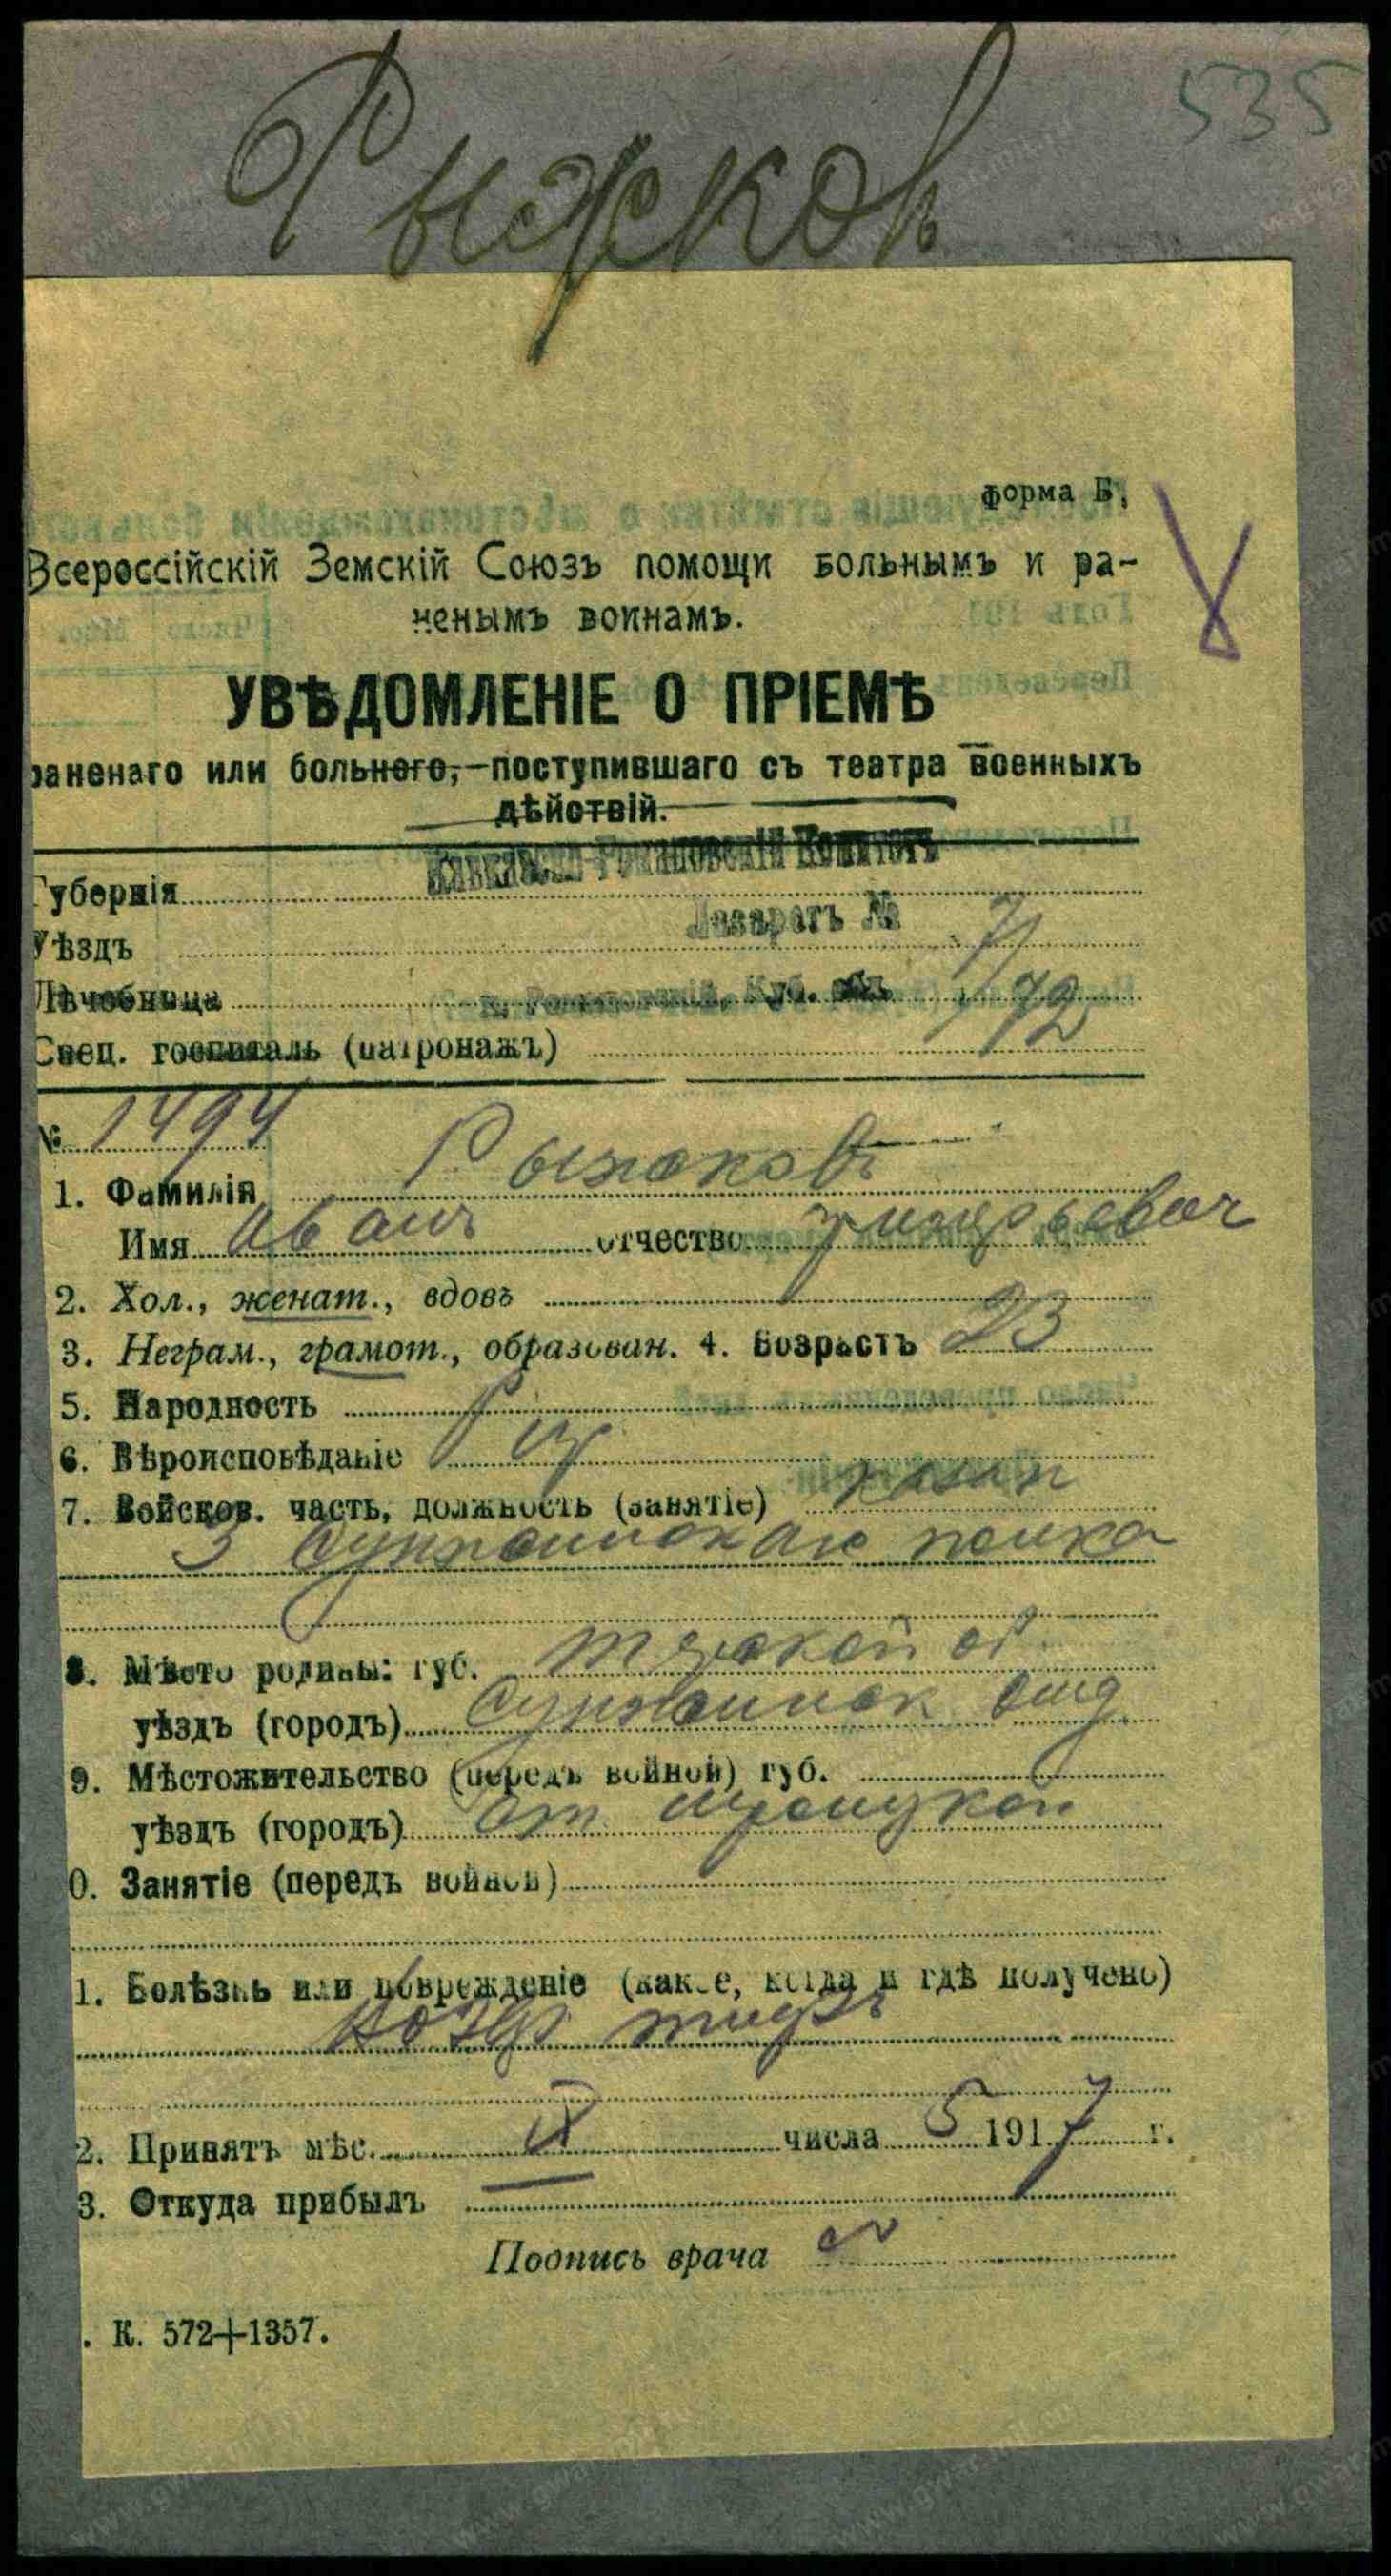 535
Рыжков
форма Б,
Всероссійскій Земскій Союзъ помощи больнымъ и ра-
ненымъ воинамъ.
УВѢДОМЛЕНІЕ О ПРІЕМѢ
раненаго или больного, поступившаго съ театра военныхъ
дѣйствій.
Губернія
Лазаретъ №
Уѣздъ
Лѣчебница
172
Спец. госпиталь (патронажъ)
№ 1494
1. Фамилія Рыжковъ
Имя Иванъ отчество Григорьевич
2. Хол., женат., вдовъ
3. Неграм., грамот., образован. 4. Возрастъ 23
5. Народность
6. Вѣроисповѣданіе
7. Войсков. часть, должность (занятіе) казак
3 Сунженскаго полка
8. Мѣсто родины: губ. Терской об
уѣздъ (городъ) Сунженск отд
9. Мѣстожительство (передъ войной) губ.
уѣздъ (городъ) ст Троицкой
0. Занятіе (передъ войной)
1. Болѣзнь или поврежденіе (какое, когда и гдѣ получено)
Возвр тифъ
2. Принятъ мѣс. числа 5 1917 г.
3. Откуда прибылъ
Подпись врача
. К. 572+1357.